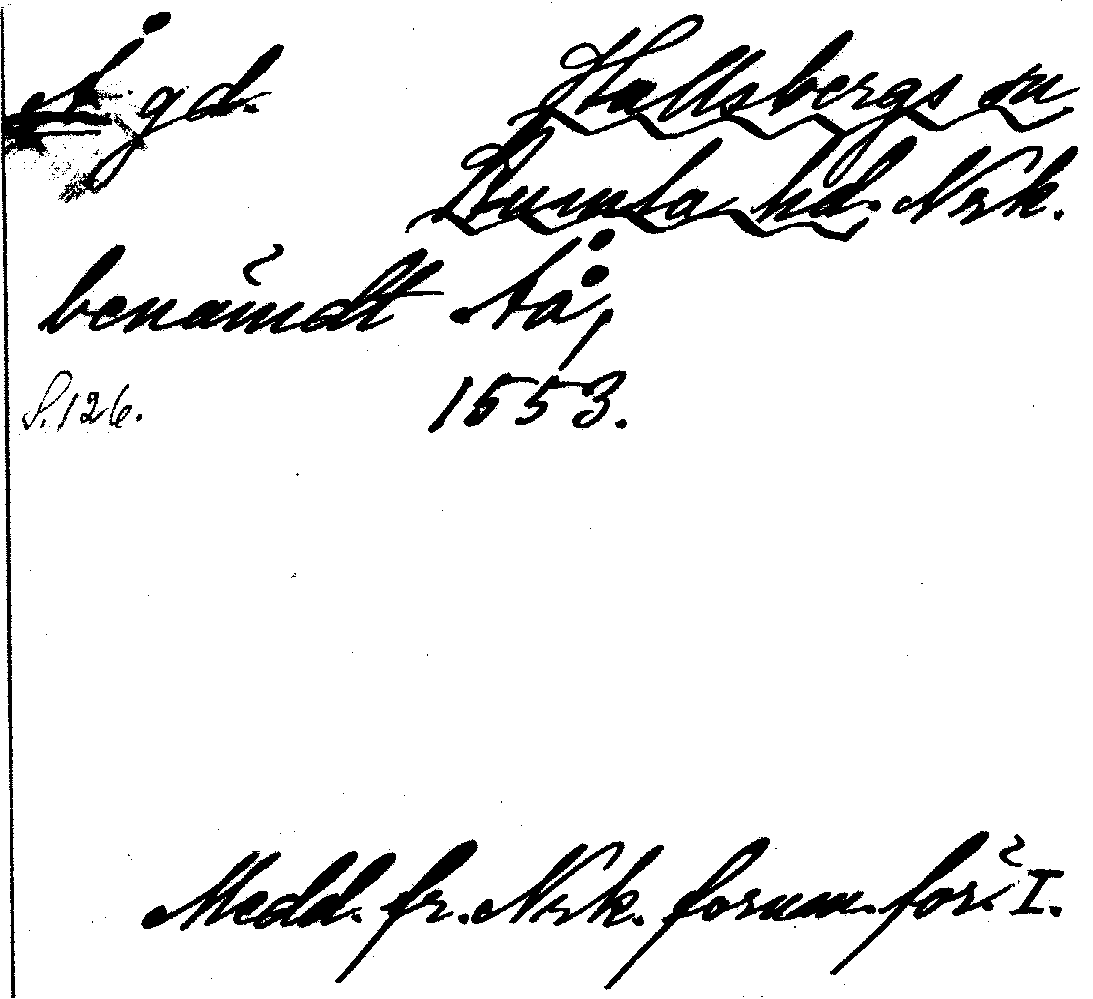 Å gd. Hallsbergs sn
Kumla hd. Nrk.
benämdt Åå,
S. 126. 1553.
Medd. fr. Nrk. fornm.för. I.